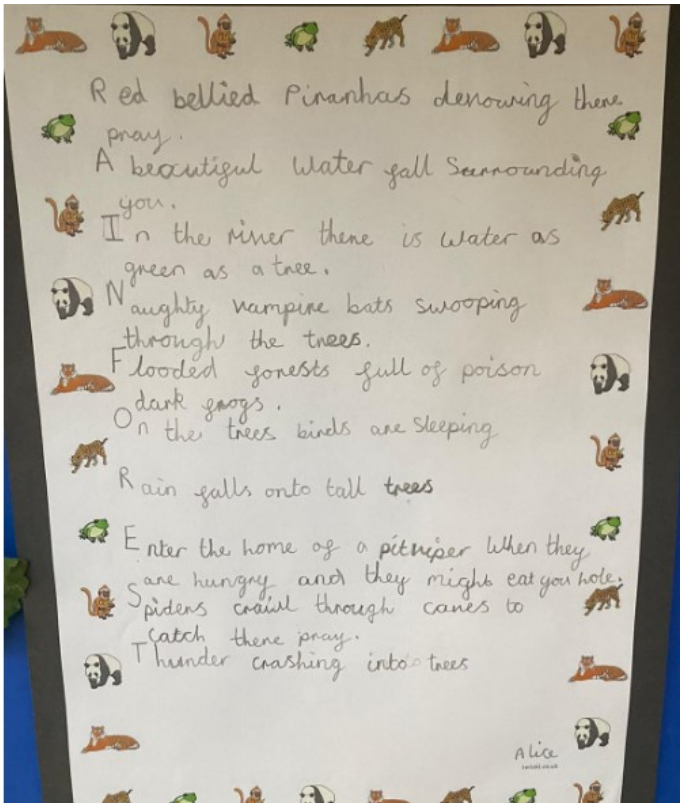 Red bellied Piranhas devouring there
pray.
A beautiful water fall Surrounding
you.
In the river there is water as
green as a tree.
Naughty vampire bats swooping
through the trees.
Flooded forests full of poison
dark frogs.
On the trees birds are sleeping
Rain falls onto tall trees
Enter the home of a pitviper when they
are hungry and they might eat you hole.
Spiders crawl through caves to
catch there pray.
Thunder crashing into trees
Alice